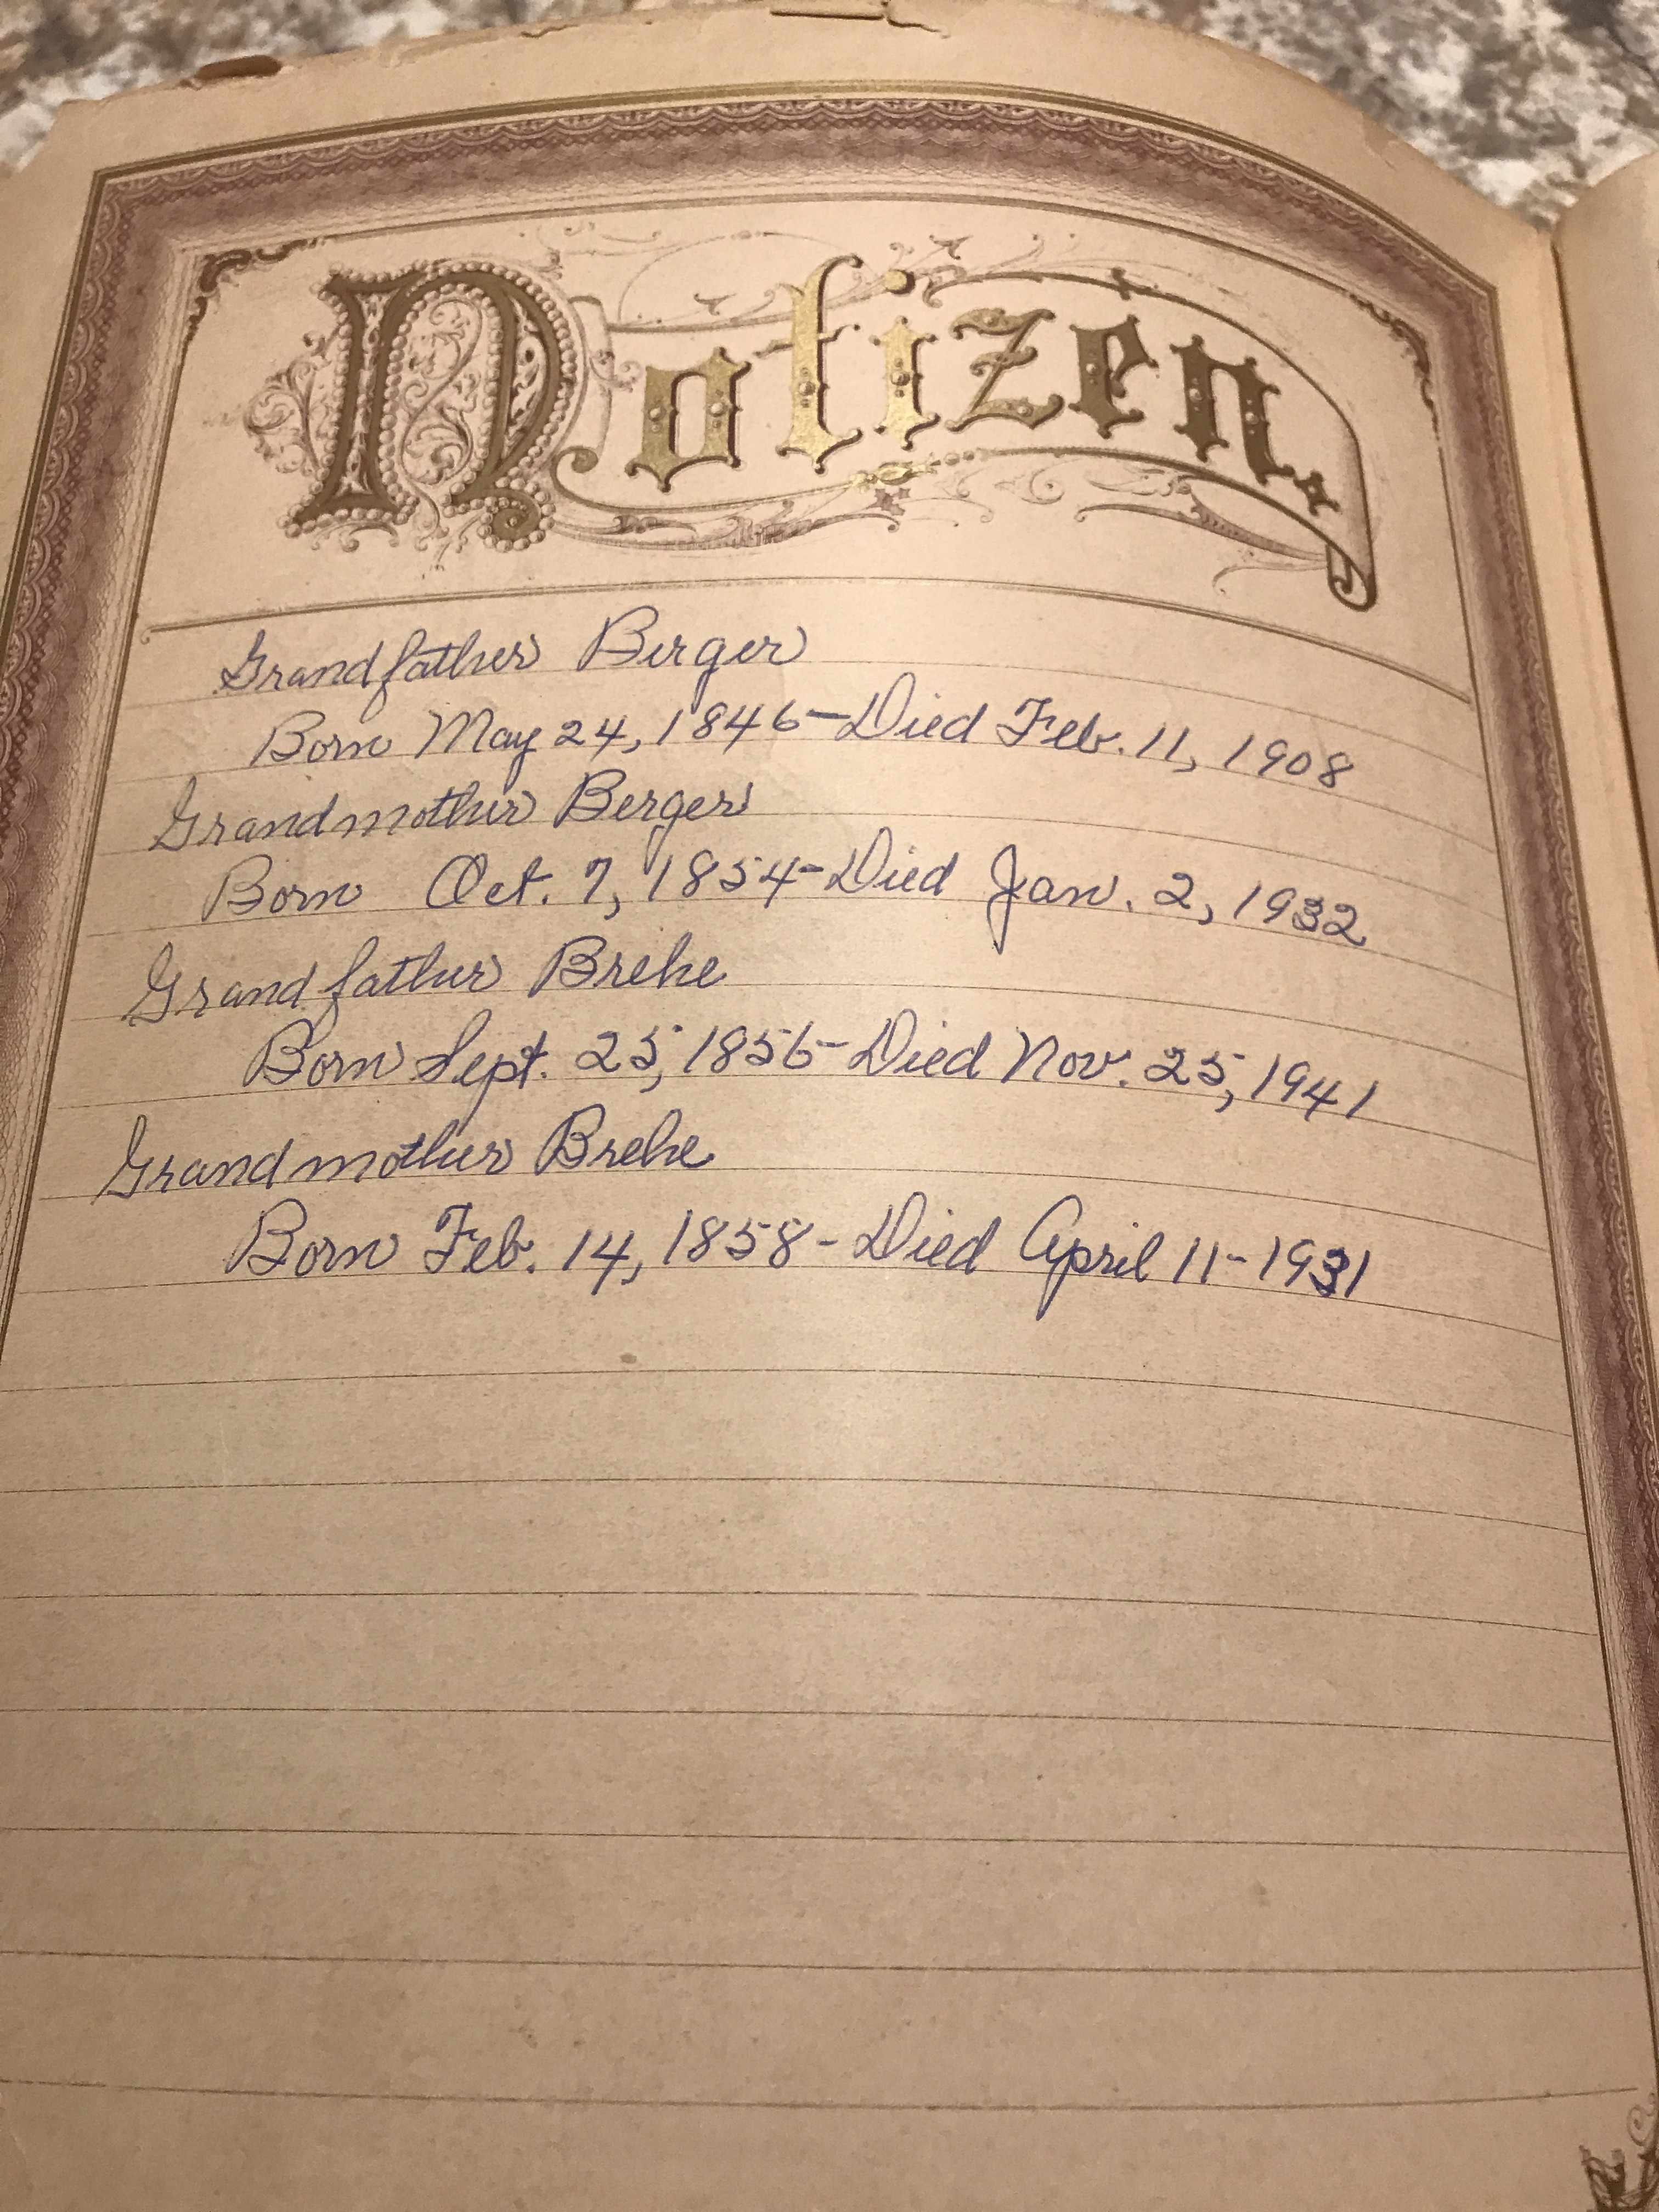 Notizen.
Grandfather Berger
Born May 24, 1846-Died Feb. 11, 1908
Grandmother Berger
Born Oct. 7, 1854-Died Jan. 2, 1932
Grandfather Brehe
Born Sept. 25, 1856-Died Nov. 25, 1941
Grandmother Brehe
Born Feb. 14, 1858-Died April 11-1931